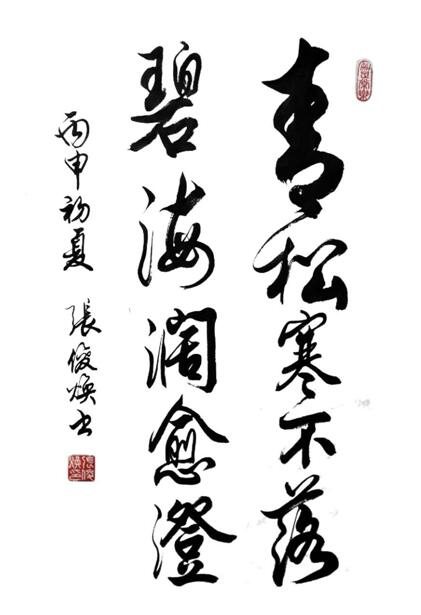 青松寒不落
碧海澗愈澄
丙申初夏 張俊煥書